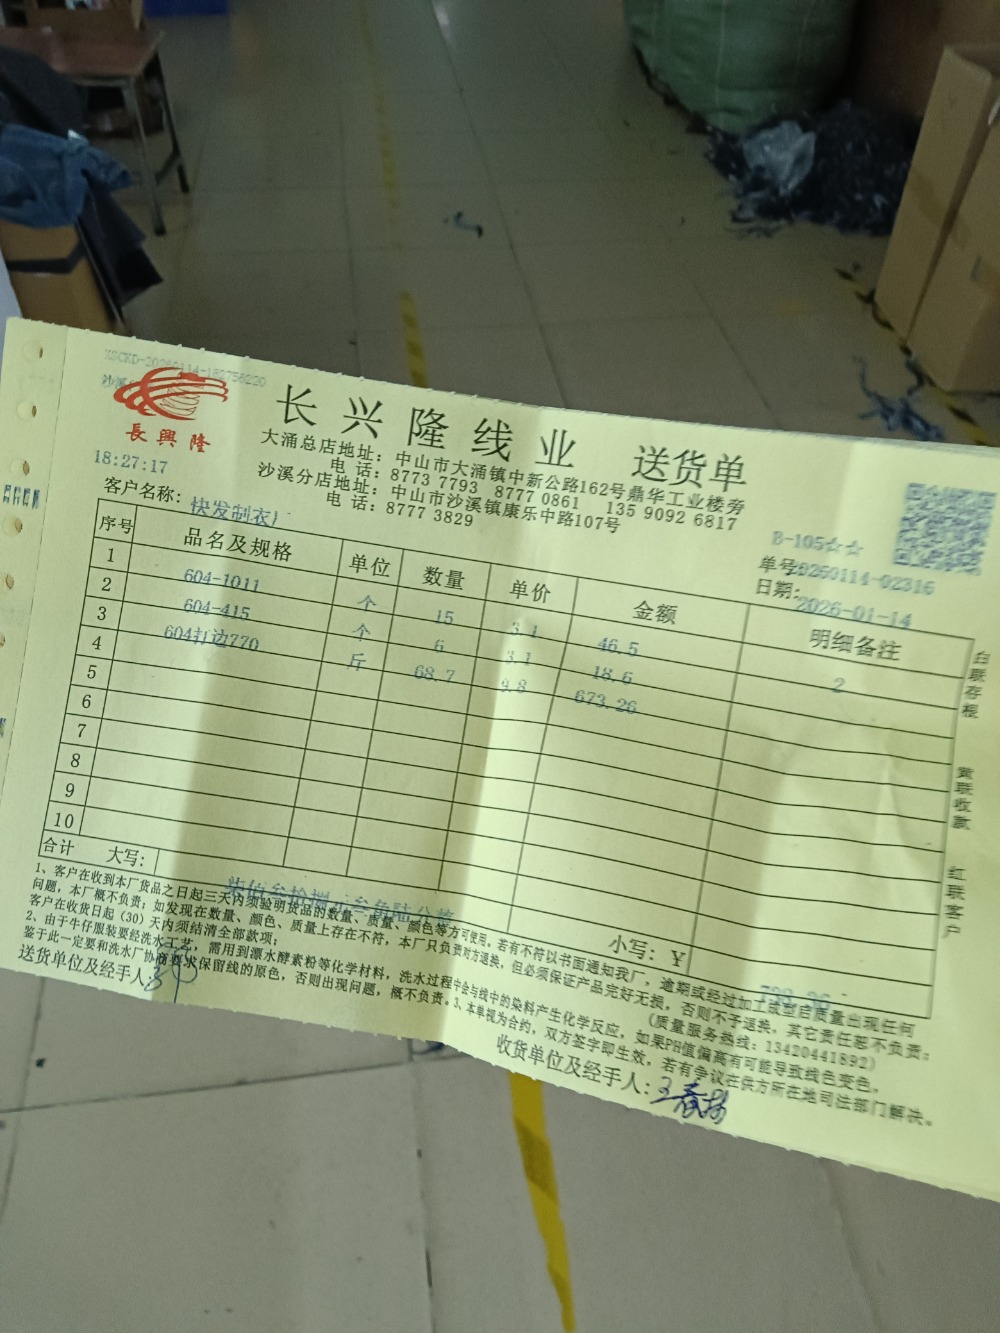 XSCKD-20260114-182756220
沙溪
長興隆
长兴隆线业 送货单
大涌总店地址：中山市大涌镇中新公路162号鼎华工业楼旁
电话：8773 7793 8777 0861 135 9092 6817
沙溪分店地址：中山市沙溪镇康乐中路107号
电话：8777 3829
18:27:17
B-105☆☆
客户名称：快发制衣厂
单号0260114-02316
日期：2026-01-14
序号 品名及规格 单位 数量 单价 金额 明细备注
1 604-1011 个 15 3.1 46.5 2
2 604-415 个 6 3.1 18.6
3 604打边770 斤 68.7 9.8 673.26
4
5
6
7
8
9
10
合计 大写：柒佰叁拾捌元叁角陆分整 小写：¥ 738.36
白联存根 黄联收款 红联客户
1、客户在收到本厂货品之日起三天内须验明货品的数量、质量、颜色等方可使用，若有不符以书面通知我厂，逾期或经过加工成型后质量出现任何
问题，本厂概不负责；如发现在数量、颜色、质量上存在不符，本厂只负责对方退换，但必须保证产品完好无损，否则不予退换，其它责任恕不负责；
客户在收货日起（30）天内须结清全部款项； （质量服务热线：13420441892）
2、由于牛仔服装要经洗水工艺，需用到漂水酵素粉等化学材料，洗水过程中会与线中的染料产生化学反应，如果PH值偏高有可能导致线色变色，
鉴于此一定要和洗水厂协商要求保留线的原色，否则出现问题，概不负责。3、本单视为合约，双方签字即生效，若有争议在供方所在地司法部门解决。
送货单位及经手人：
收货单位及经手人：王春扬